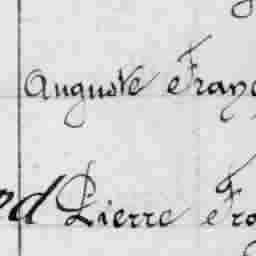 Auguste Franç
d Pierre Fra